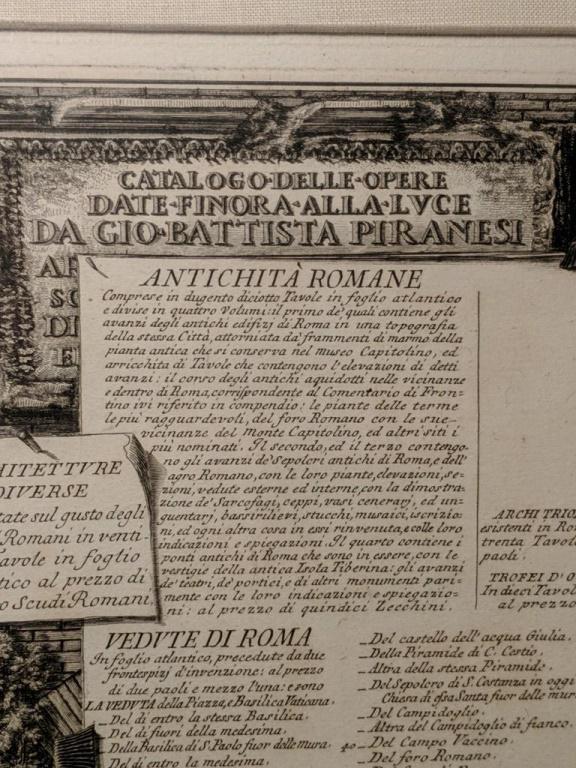 CATALOGO·DELLE·OPERE
DATE·FINORA·ALLA·LVCE
DA GIO·BATTISTA PIRANESI
ANTICHITÀ ROMANE
Comprese in dugento diciotto Tavole in foglio atlantico
e divise in quattro Volumi: il primo de' quali contiene gli
avanzi degli antichi edifizj di Roma in una topografia
della stessa Città, attorniata da' frammenti di marmo della
pianta antica che si conserva nel museo Capitolino, ed
arricchita di Tavole che contengono l'elevazioni di detti
avanzi: il corso degli antichi aquidotti nelle vicinanze
e dentro di Roma, corrispondente al Comentario di Fron-
tino ivi riferito in compendio: le piante delle terme
le più ragguardevoli, del foro Romano con le sue
vicinanze del Monte Capitolino, ed altri siti i
più nominati. Il secondo, ed il terzo contengo-
no gli avanzi de' Sepolcri antichi di Roma, e dell'
agro Romano, con le loro piante, elevazioni, se-
zioni, vedute esterne ed interne, con la dimostra-
zione de' Sarcofagi, ceppi, vasi cenerarj, ed un-
guentarj, bassirilievi, stucchi, musaici, iscrizio-
ni, ed ogni altra cosa in essi rinvenuta, e colle loro
indicazioni e spiegazioni. Il quarto contiene i
ponti antichi di Roma che sono in essere, con le
vestigie della antica Isola Tiberina: gli avanzi
de' teatri, de' portici, e di altri monumenti pari-
mente con le loro indicazioni e spiegazio-
ni: al prezzo di quindici Zecchini.
HITETTVRE
DIVERSE
tate sul gusto degli
Romani in venti-
Tavole in foglio
tico al prezzo di
o Scudi Romani.
ARCHI TRIO
esistenti in Ro
trenta Tavol
paoli.
TROFEI D'O
In dieci Tavol
al prezzo
VEDVTE DI ROMA
In foglio atlantico, precedute da due
frontespizj d'invenzione: al prezzo
di due paoli e mezzo l'una: e sono
LA VEDVTA della Piazza, e Basilica Vaticana.
_Del di entro la stessa Basilica.
_Del di fuori della medesima.
_Della Basilica di S. Paolo fuor delle mura.
_Del di entro la medesima.
_Del castello dell'acqua Giulia.
_Della Piramide di C. Cestio.
_Altra della stessa Piramide.
_Del Sepolcro di S. Costanza in oggi
Chiesa di essa Santa fuor delle mur
_Del Campidoglio.
_Altra del Campidoglio di fianco.
40_Del Campo Vaccino.
_Del foro Romano.